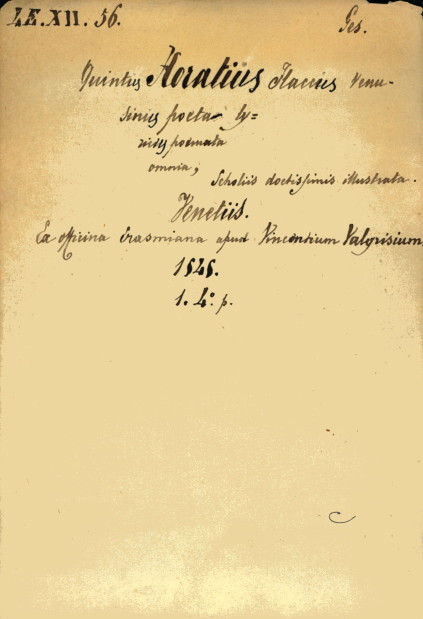 LE.XII. 56.
Ges.
Quintus Horatius Flaccus Venu-
sinus poeta ly=
ricus poemata
omnia; Scholiis doctissimis illustrata.
Venetiis.
Ex officina Erasmiana apud Vincentium Valgrisium
1545.
1. 4.° p.